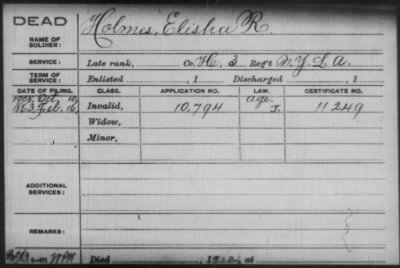 DEAD
NAME OF SOLDIER: Holmes, Elisha R.
SERVICE: Late rank, Co. H. 3 Reg't N.J. L. A.
TERM OF SERVICE: Enlisted , 1 Discharged , 1
DATE OF FILING. CLASS. APPLICATION NO. LAW. CERTIFICATE NO.
1908, Oct. 10, age.
Feb. 16, Invalid, 10,794 I. 11249
Widow,
Minor,
ADDITIONAL SERVICES:
REMARKS:
Died , 19 at